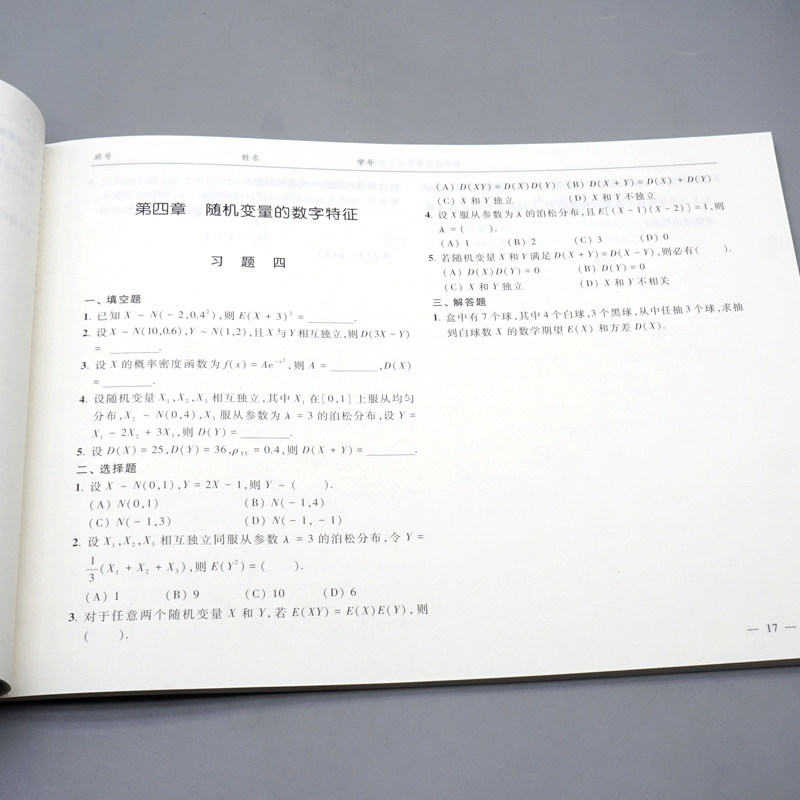 班号 姓名 学号
第四章 随机变量的数字特征
习 题 四
一、填空题
1. 已知 X ~ N(-2,0.4²),则 E(X+3)² = ________.
2. 设 X ~ N(10,0.6),Y ~ N(1,2),且 X 与 Y 相互独立,则 D(3X-Y)
= ________.
3. 设 X 的概率密度函数为 f(x) = Ae^{-x²},则 A = ________,D(X)
= ________.
4. 设随机变量 X₁,X₂,X₃ 相互独立,其中 X₁ 在[0,1]上服从均匀
分布,X₂ ~ N(0,4),X₃ 服从参数为 λ = 3 的泊松分布,设 Y =
X₁ - 2X₂ + 3X₃,则 D(Y) = ________.
5. 设 D(X) = 25,D(Y) = 36,ρ_{XY} = 0.4,则 D(X+Y) = ________.
二、选择题
1. 设 X ~ N(0,1),Y = 2X-1,则 Y ~ ( ).
(A) N(0,1) (B) N(-1,4)
(C) N(-1,3) (D) N(-1,-1)
2. 设 X₁,X₂,X₃ 相互独立同服从参数 λ = 3 的泊松分布,令 Y =
1/3(X₁ + X₂ + X₃),则 E(Y²) = ( ).
(A) 1 (B) 9 (C) 10 (D) 6
3. 对于任意两个随机变量 X 和 Y,若 E(XY) = E(X)E(Y),则
( ).
(A) D(XY) = D(X)D(Y) (B) D(X+Y) = D(X) + D(Y)
(C) X 和 Y 独立 (D) X 和 Y 不独立
4. 设 X 服从参数为 λ 的泊松分布,且 E[(X-1)(X-2)] = 1,则
λ = ( ).
(A) 1 (B) 2 (C) 3 (D) 0
5. 若随机变量 X 和 Y 满足 D(X+Y) = D(X-Y),则必有( ).
(A) D(X)D(Y) = 0 (B) D(Y) = 0
(C) X 和 Y 独立 (D) X 和 Y 不相关
三、解答题
1. 盒中有 7 个球,其中 4 个白球,3 个黑球,从中任抽 3 个球,求抽
到白球数 X 的数学期望 E(X) 和方差 D(X).
— 17 —